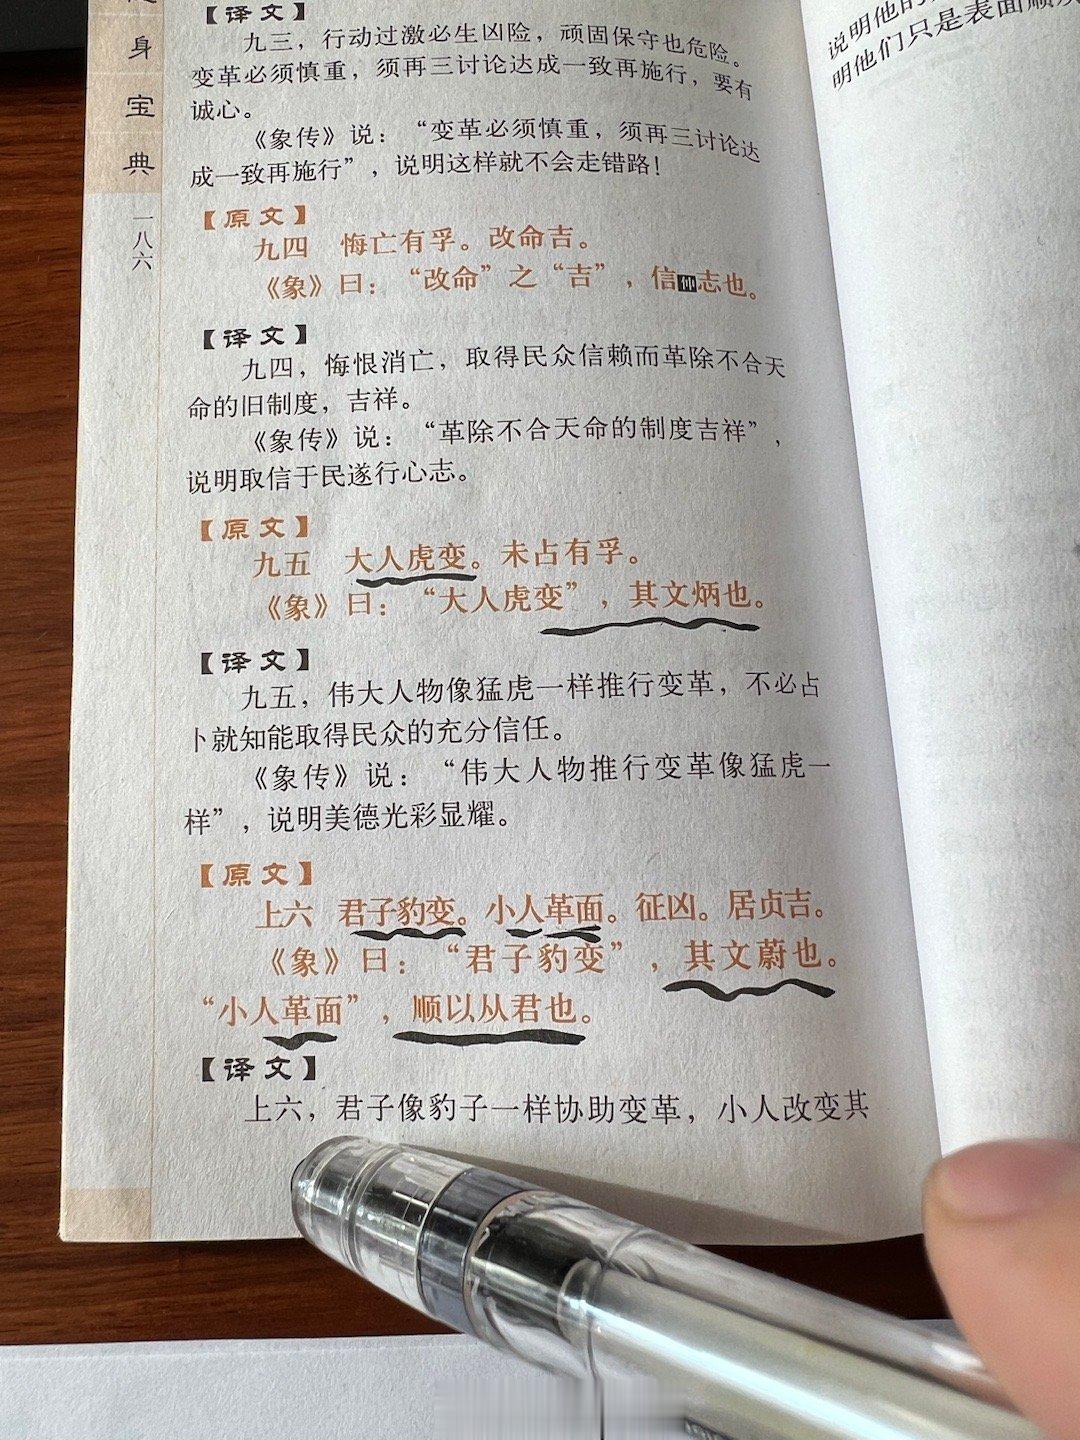 身宝典
一八六
【译文】
九三，行动过激必生凶险，顽固保守也危险。
变革必须慎重，须再三讨论达成一致再施行，要有
诚心。
《象传》说：“变革必须慎重，须再三讨论达
成一致再施行”，说明这样就不会走错路！
【原文】
九四　悔亡有孚。改命吉。
《象》曰：“改命”之“吉”，信伸志也。
【译文】
九四，悔恨消亡，取得民众信赖而革除不合天
命的旧制度，吉祥。
《象传》说：“革除不合天命的制度吉祥”，
说明取信于民遂行心志。
【原文】
九五　大人虎变。未占有孚。
《象》曰：“大人虎变”，其文炳也。
【译文】
九五，伟大人物像猛虎一样推行变革，不必占
卜就知能取得民众的充分信任。
《象传》说：“伟大人物推行变革像猛虎一
样”，说明美德光彩显耀。
【原文】
上六　君子豹变。小人革面。征凶。居贞吉。
《象》曰：“君子豹变”，其文蔚也。
“小人革面”，顺以从君也。
【译文】
上六，君子像豹子一样协助变革，小人改变其
说明他的
明他们只是表面顺